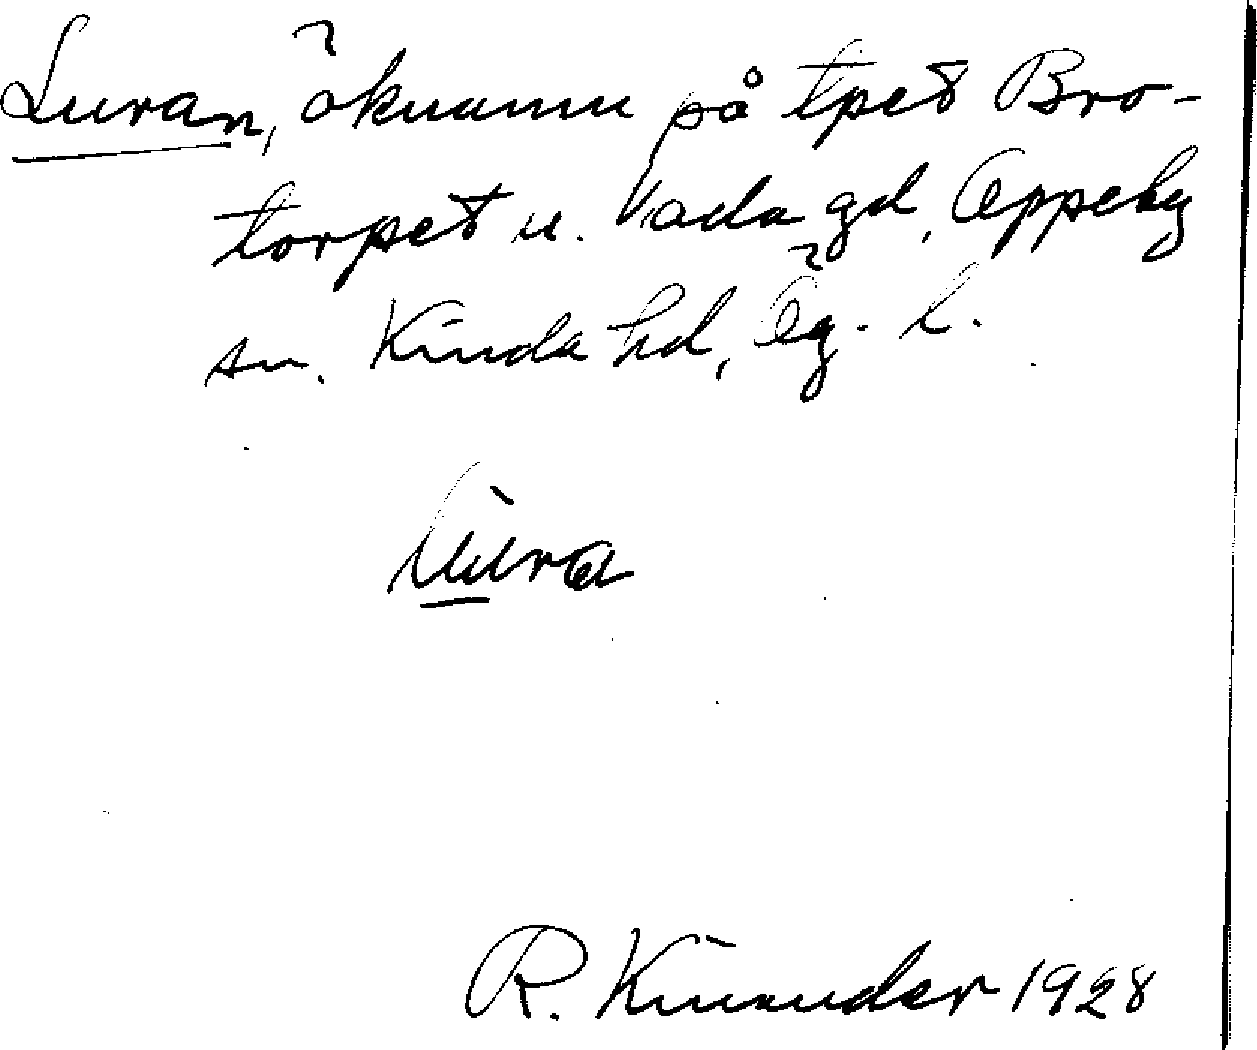 Luran, öknamn på tpet Bro-
torpet u. Vada gd, Oppeby
sn. Kinda hd, Ög. l.
lùra
R. Kinander 1928